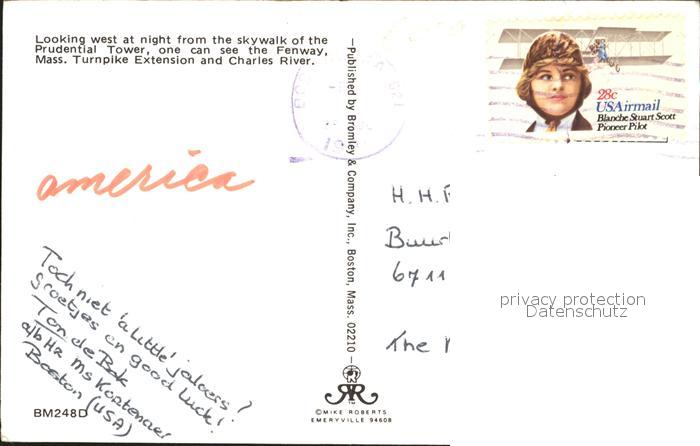 Looking west at night from the skywalk of the
Prudential Tower, one can see the Fenway,
Mass. Turnpike Extension and Charles River.
america
Toch niet 'a little' jaloers?
groetjes en good luck!
Ton de Bok
a/b Hr Ms Kortenaer
Boston (USA)
BM248D
—Published by Bromley & Company, Inc., Boston, Mass. 02210—
©MIKE ROBERTS
EMERYVILLE 94608
28c
USAirmail
Blanche Stuart Scott
Pioneer Pilot
H. H.
6711
The
privacy protection
Datenschutz